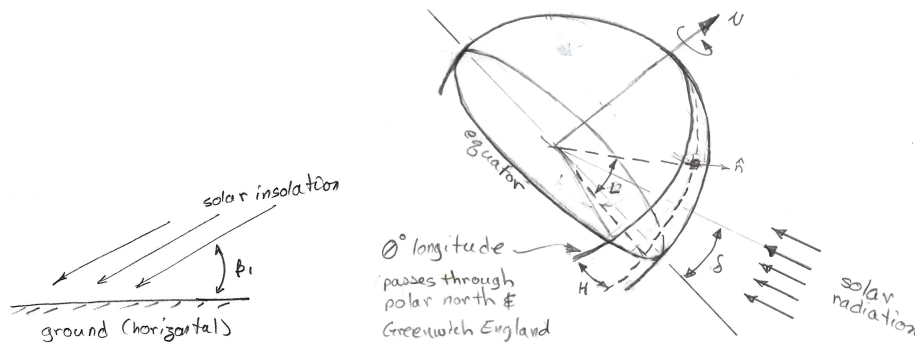 solar insolation
β₁
ground (horizontal)
N
equator
n̂
L
0° longitude
passes through
polar north &
Greenwich England
H
δ
solar
radiation